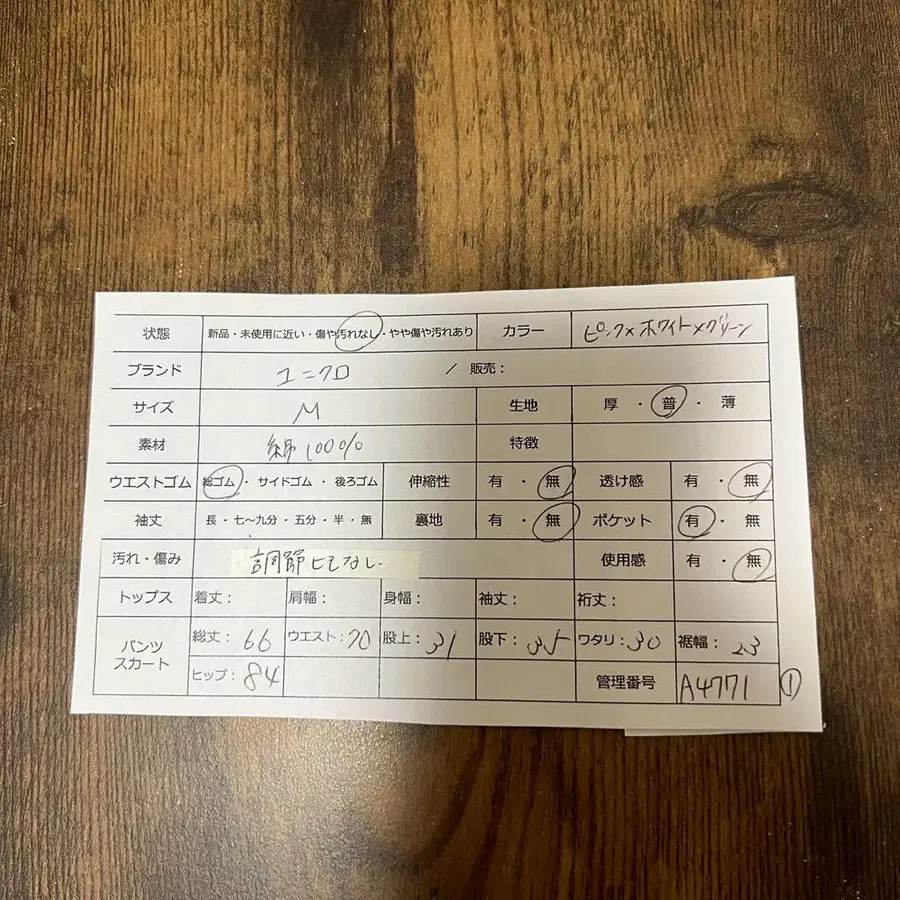 状態 新品・未使用に近い・傷や汚れなし・やや傷や汚れあり カラー ピンク×ホワイト×グリーン
ブランド ユニクロ / 販売：
サイズ M 生地 厚・普・薄
素材 綿100% 特徴
ウエストゴム 総ゴム・サイドゴム・後ろゴム 伸縮性 有・無 透け感 有・無
袖丈 長・七〜九分・五分・半・無 裏地 有・無 ポケット 有・無
汚れ・傷み 調節ヒモなし. 使用感 有・無
トップス 着丈： 肩幅： 身幅： 袖丈： 裄丈：
パンツ スカート 総丈：66 ウエスト：70 股上：31 股下：35 ワタリ：30 裾幅：23
ヒップ：84 管理番号 A4771 ①